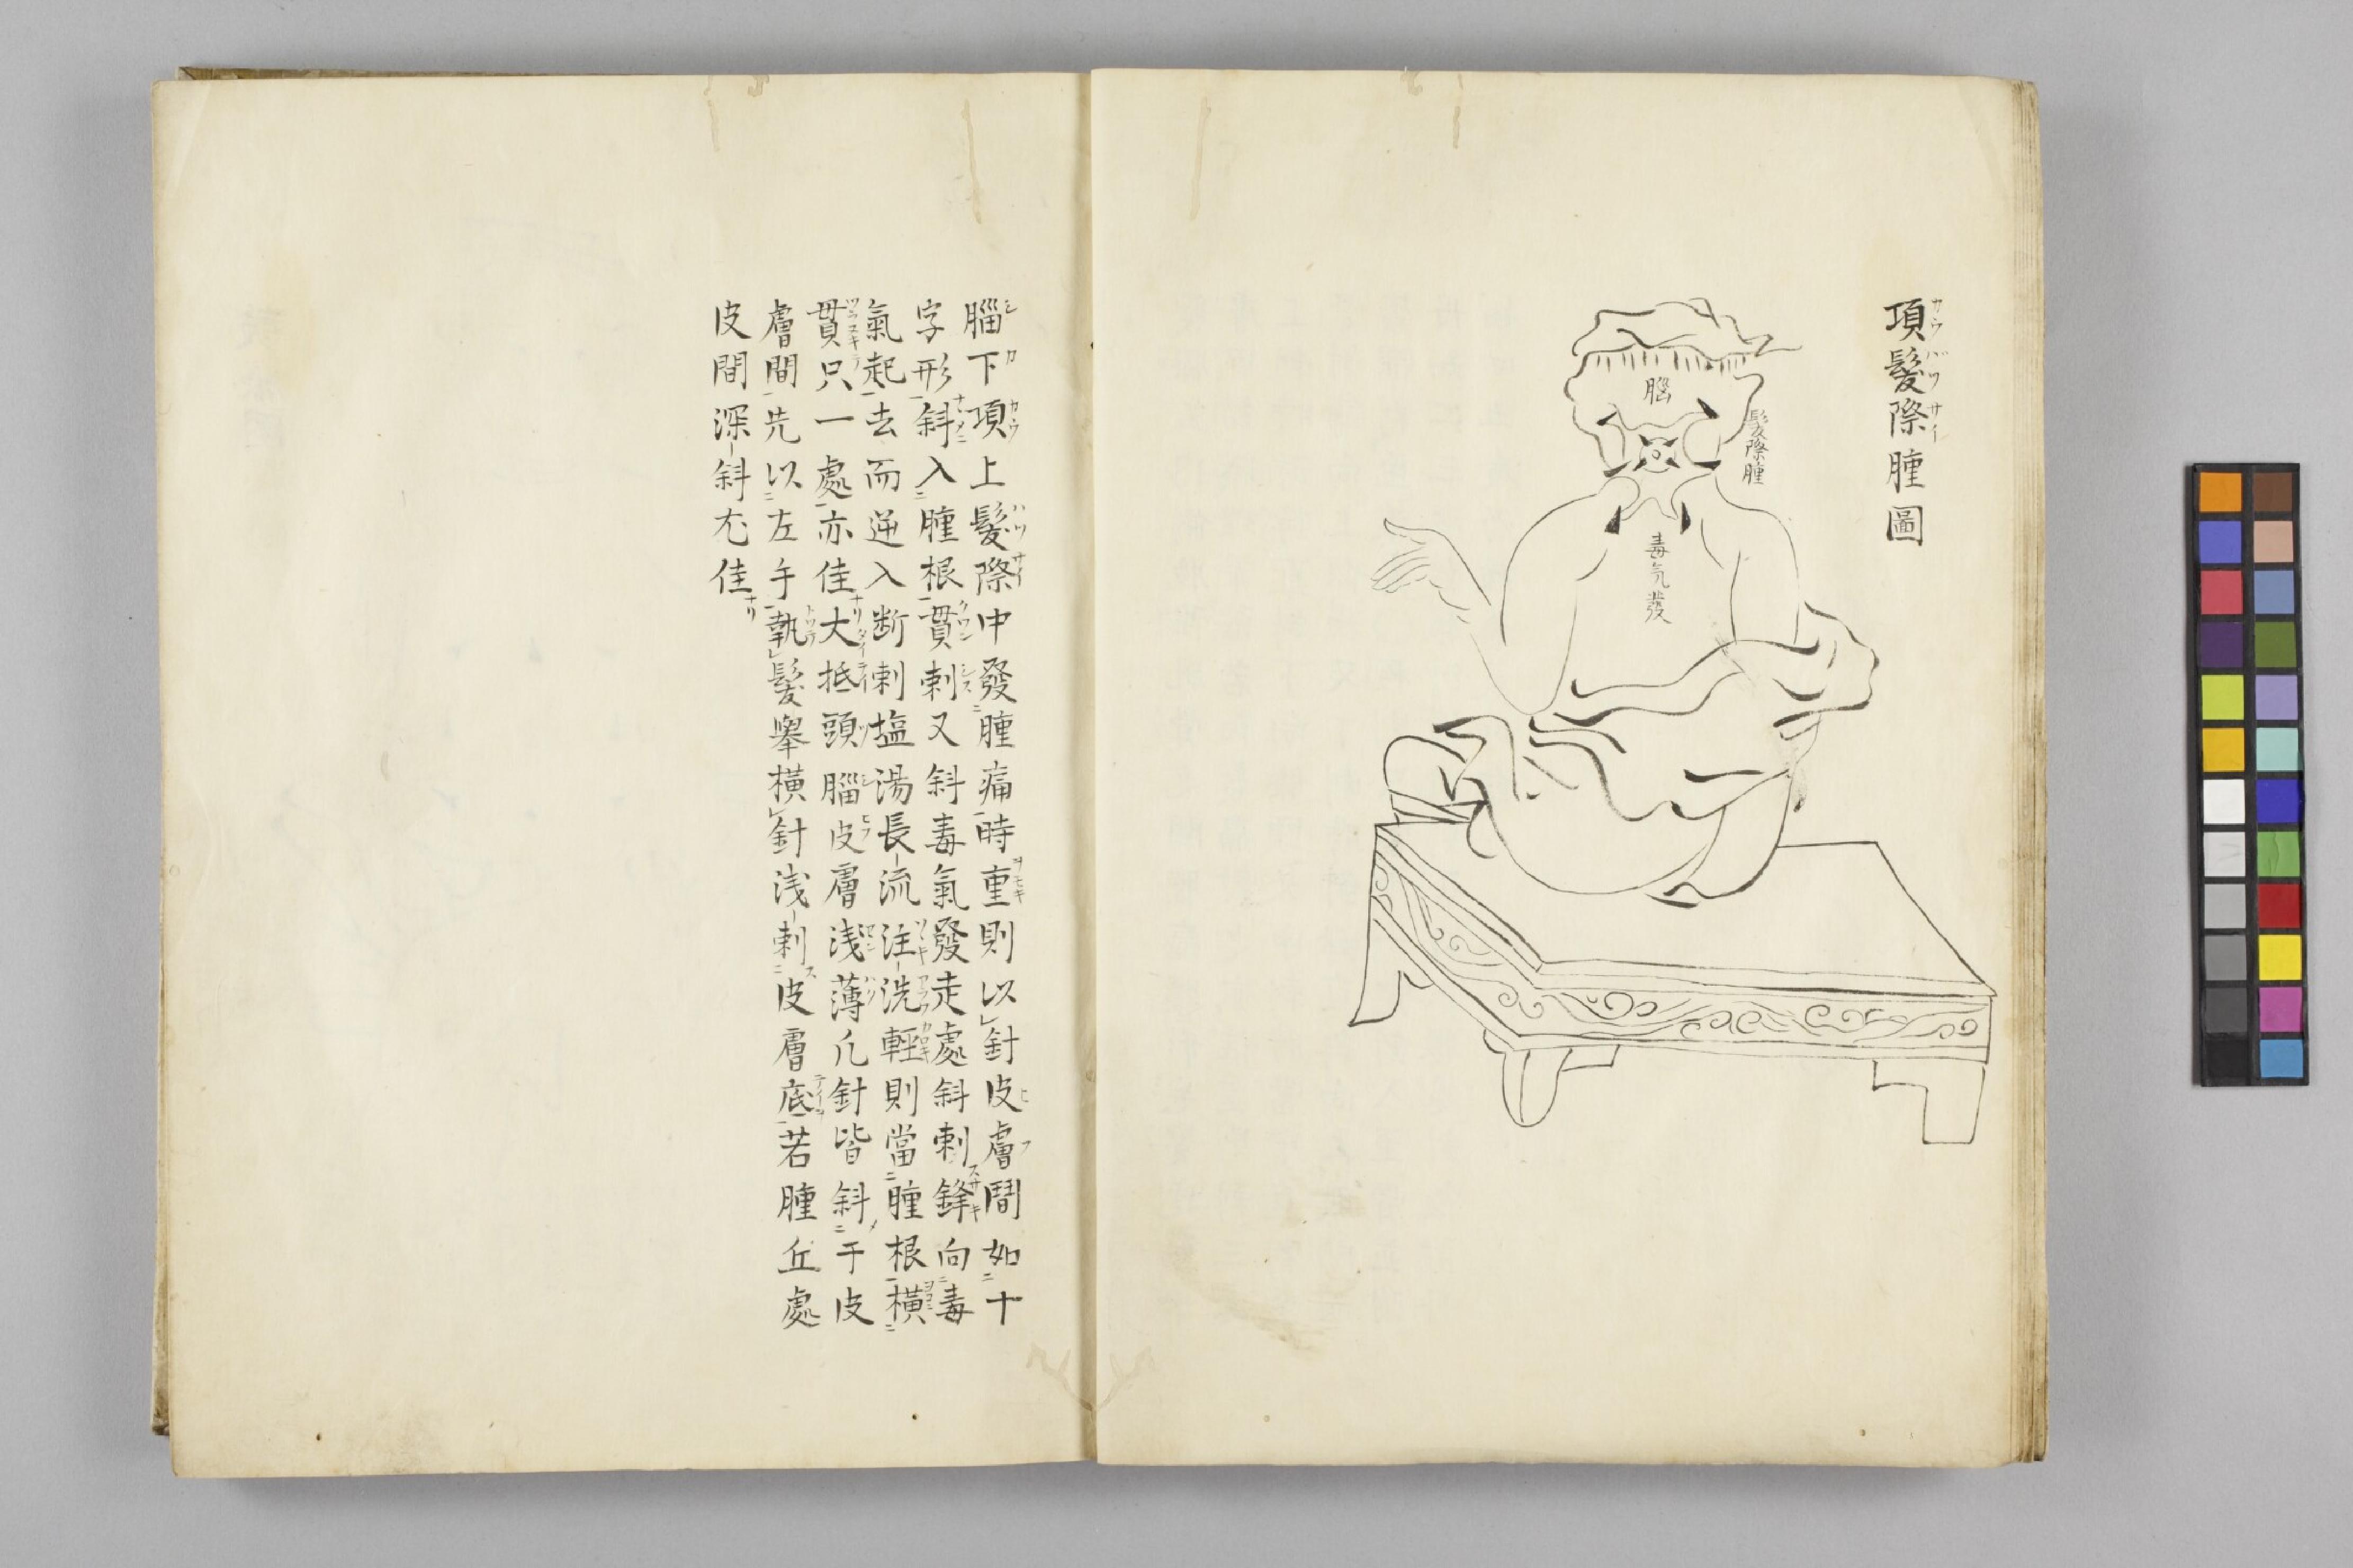 項髮際腫圖
髮際腫
腦
毒気發
腦下項上髮際中發腫痛時重則以針皮膚間如十
字形斜入腫根貫刺又斜毒氣發走處斜刺鋒向毒
氣起去而逆入断刺塩湯長流注洗輕則當腫根橫
貫只一處亦佳大抵頭腦皮膚浅薄凢針皆斜于皮
膚間先以左手執髮舉橫針浅刺皮膚底若腫丘處
皮間深斜尤佳